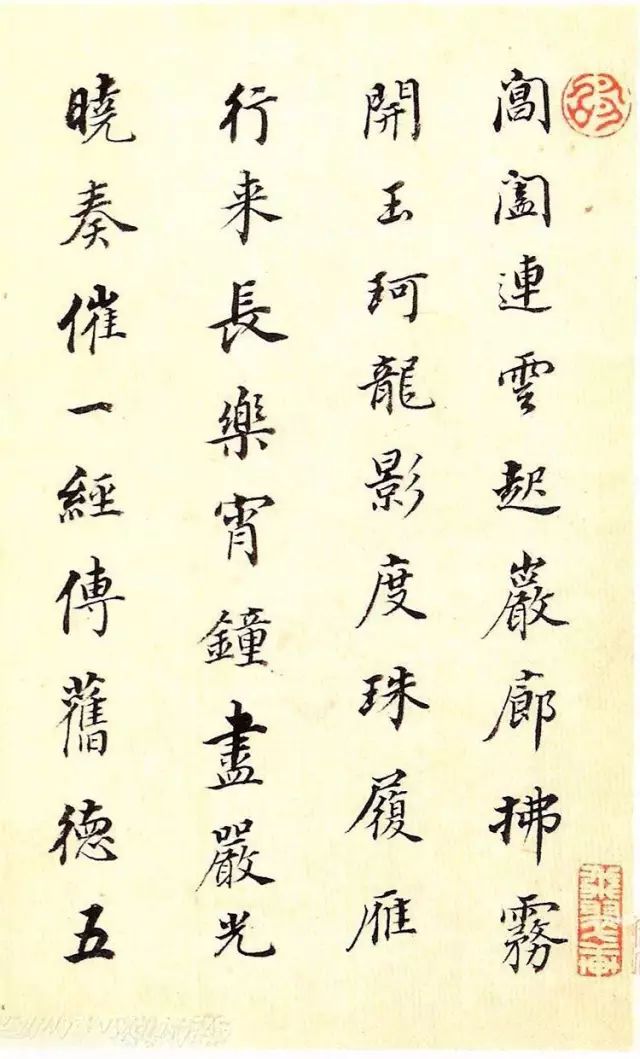 閶闔連雲起巖廊拂霧
開玉珂龍影度珠履雁
行来長樂宵鐘盡嚴光
曉奏催一經傳舊德五